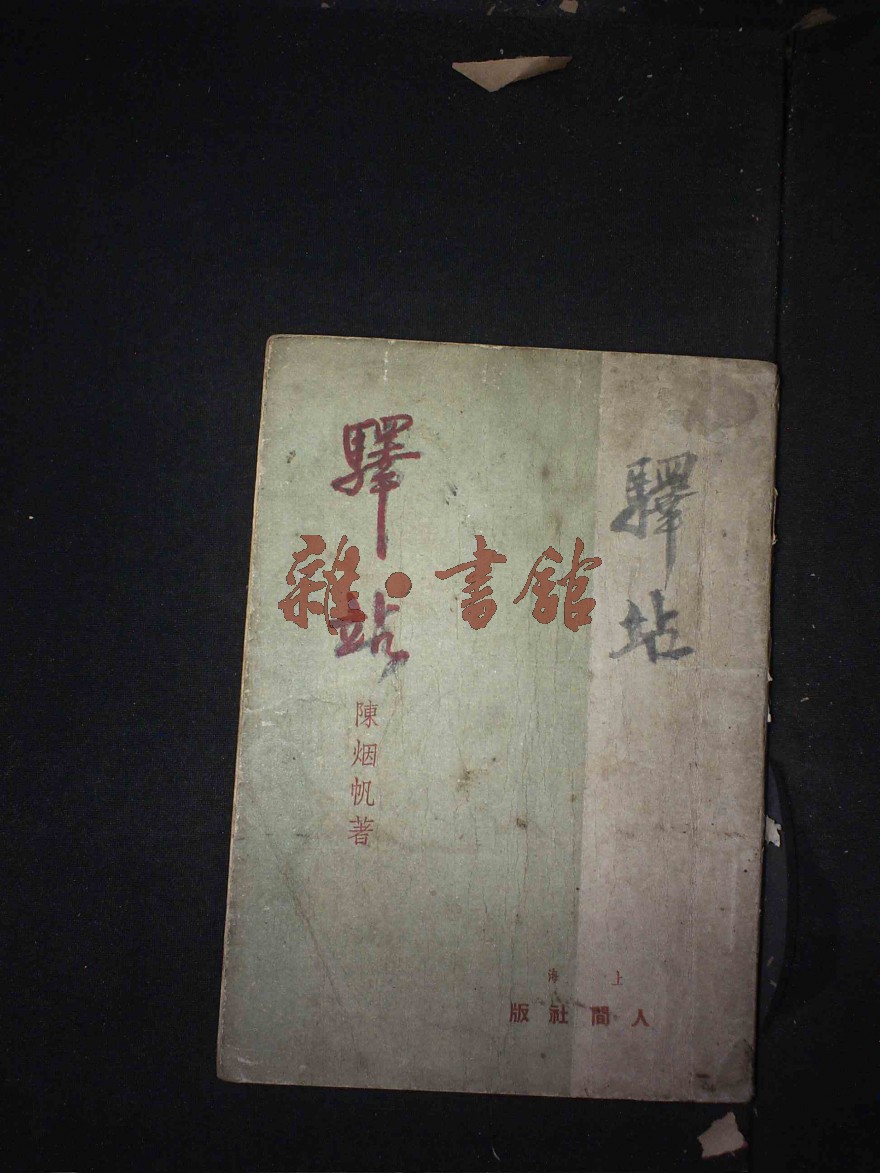 驛站
驛站
陳烟帆著
上海
人間社版
雜·書館